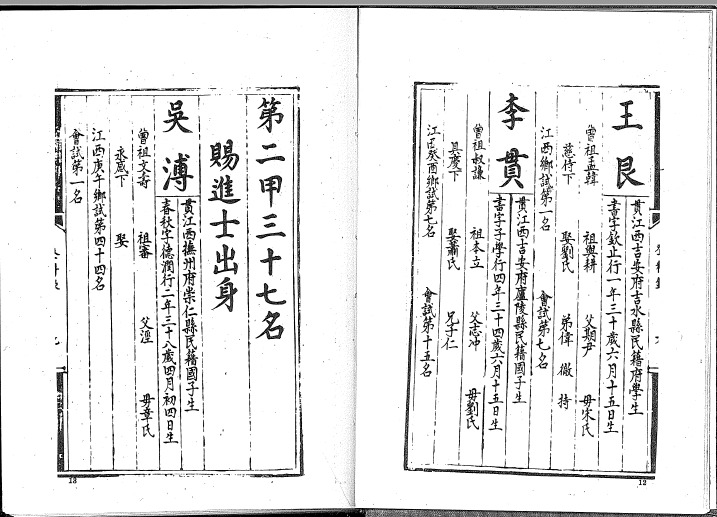 王艮
貫江西吉安府吉水縣民籍府學生
書字欽止行一年三十歲六月十五日生
曾祖孟韓 祖與耕 父期尹 母宋氏
慈侍下 娶劉氏 弟偉 儆 持
江西鄉試第一名 會試第七名
李貫
貫江西吉安府廬陵縣民籍國子生
書字子學行四年三十四歲六月十五日生
曾祖叔謙 祖本立 父志冲 母劉氏
具慶下 娶蕭氏 兄子仁
江西癸酉鄉試第七名 會試第十五名
12
第二甲三十七名
賜進士出身
吳溥
貫江西撫州府崇仁縣民籍國子生
春秋字德潤行二年三十八歲四月初四日生
曾祖文奇 祖審 父涇 母章氏
永感下 娶
江西庚午鄉試第四十四名
會試第一名
13